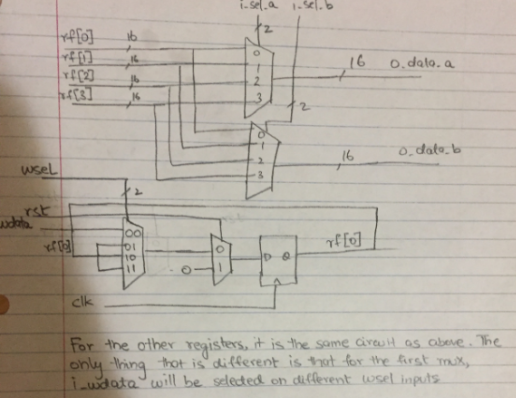 i_sel_a i_sel_b
2
rf[0] 16
rf[1] 16
rf[2] 16
rf[3] 16
0
1
2
3
16 o_data_a
2
0
1
2
3
16 o_data_b
wsel
2
rst
wdata
rf[0]
00
01
10
11
0
0
1
D Q
rf[0]
clk
For the other registers, it is the same circuit as above. The
only thing that is different is that for the first mux,
i_wdata will be selected on different wsel inputs